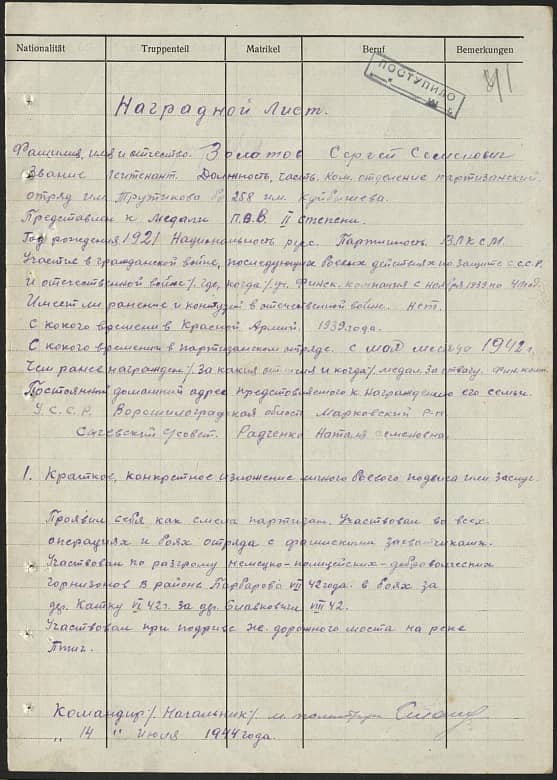 Nationalität Truppenteil Matrikel Beruf Bemerkungen
ПОСТУПИЛО
Наградной лист.
Фамилия, имя и отчество. Золотов Сергей Семенович
Звание лейтенант. Должность, часть. Ком. отделение партизанский
отряд им. 258 им. Куйбышева.
Представлен к медали П.О.В. II степени.
Год рождения 1921 Национальность рус. Партийность. ВЛКСМ.
Участие в гражданской войне, последующих боевых действиях по защите С.С.С.Р.
и отечественной войне /где, когда/ уч. Финск. компания с ноября 1939 по
Имеет ли ранение и контузий в отечественной войне. нет.
С какого времени в Красной Армий. 1939 года.
С какого времени в партизанском отряде. с мая месяца 1942 г.
Чем ранее награжден/ За какия отличия и когда/ медал. За отвагу. Фин. комп.
Постоянный домашний адрес представляемого к награждению его семьи.
У.С.С.Р. Ворошиловградская область Марковский р-н
Сычевский с/совет. Радченко Наталя Семеновна.
1. Краткое, конкретное изложение личного боевого подвига или заслуг.
Проявил себя как смелы партизан. Участвовал во всех
операциях и боях отряда с фашискими захватчиками.
Участвовал по разгрому немецко-полицейских-добровольческих
горнизонов в районе Барбарово VII 42 года. в боях за
др. Катку VI 42 г. за др. VIII 42.
Участвовал при подриве же. дорожного моста на реке
Птич.
Командир/. Начальник/.
„ 14 " Июля 1944 года.